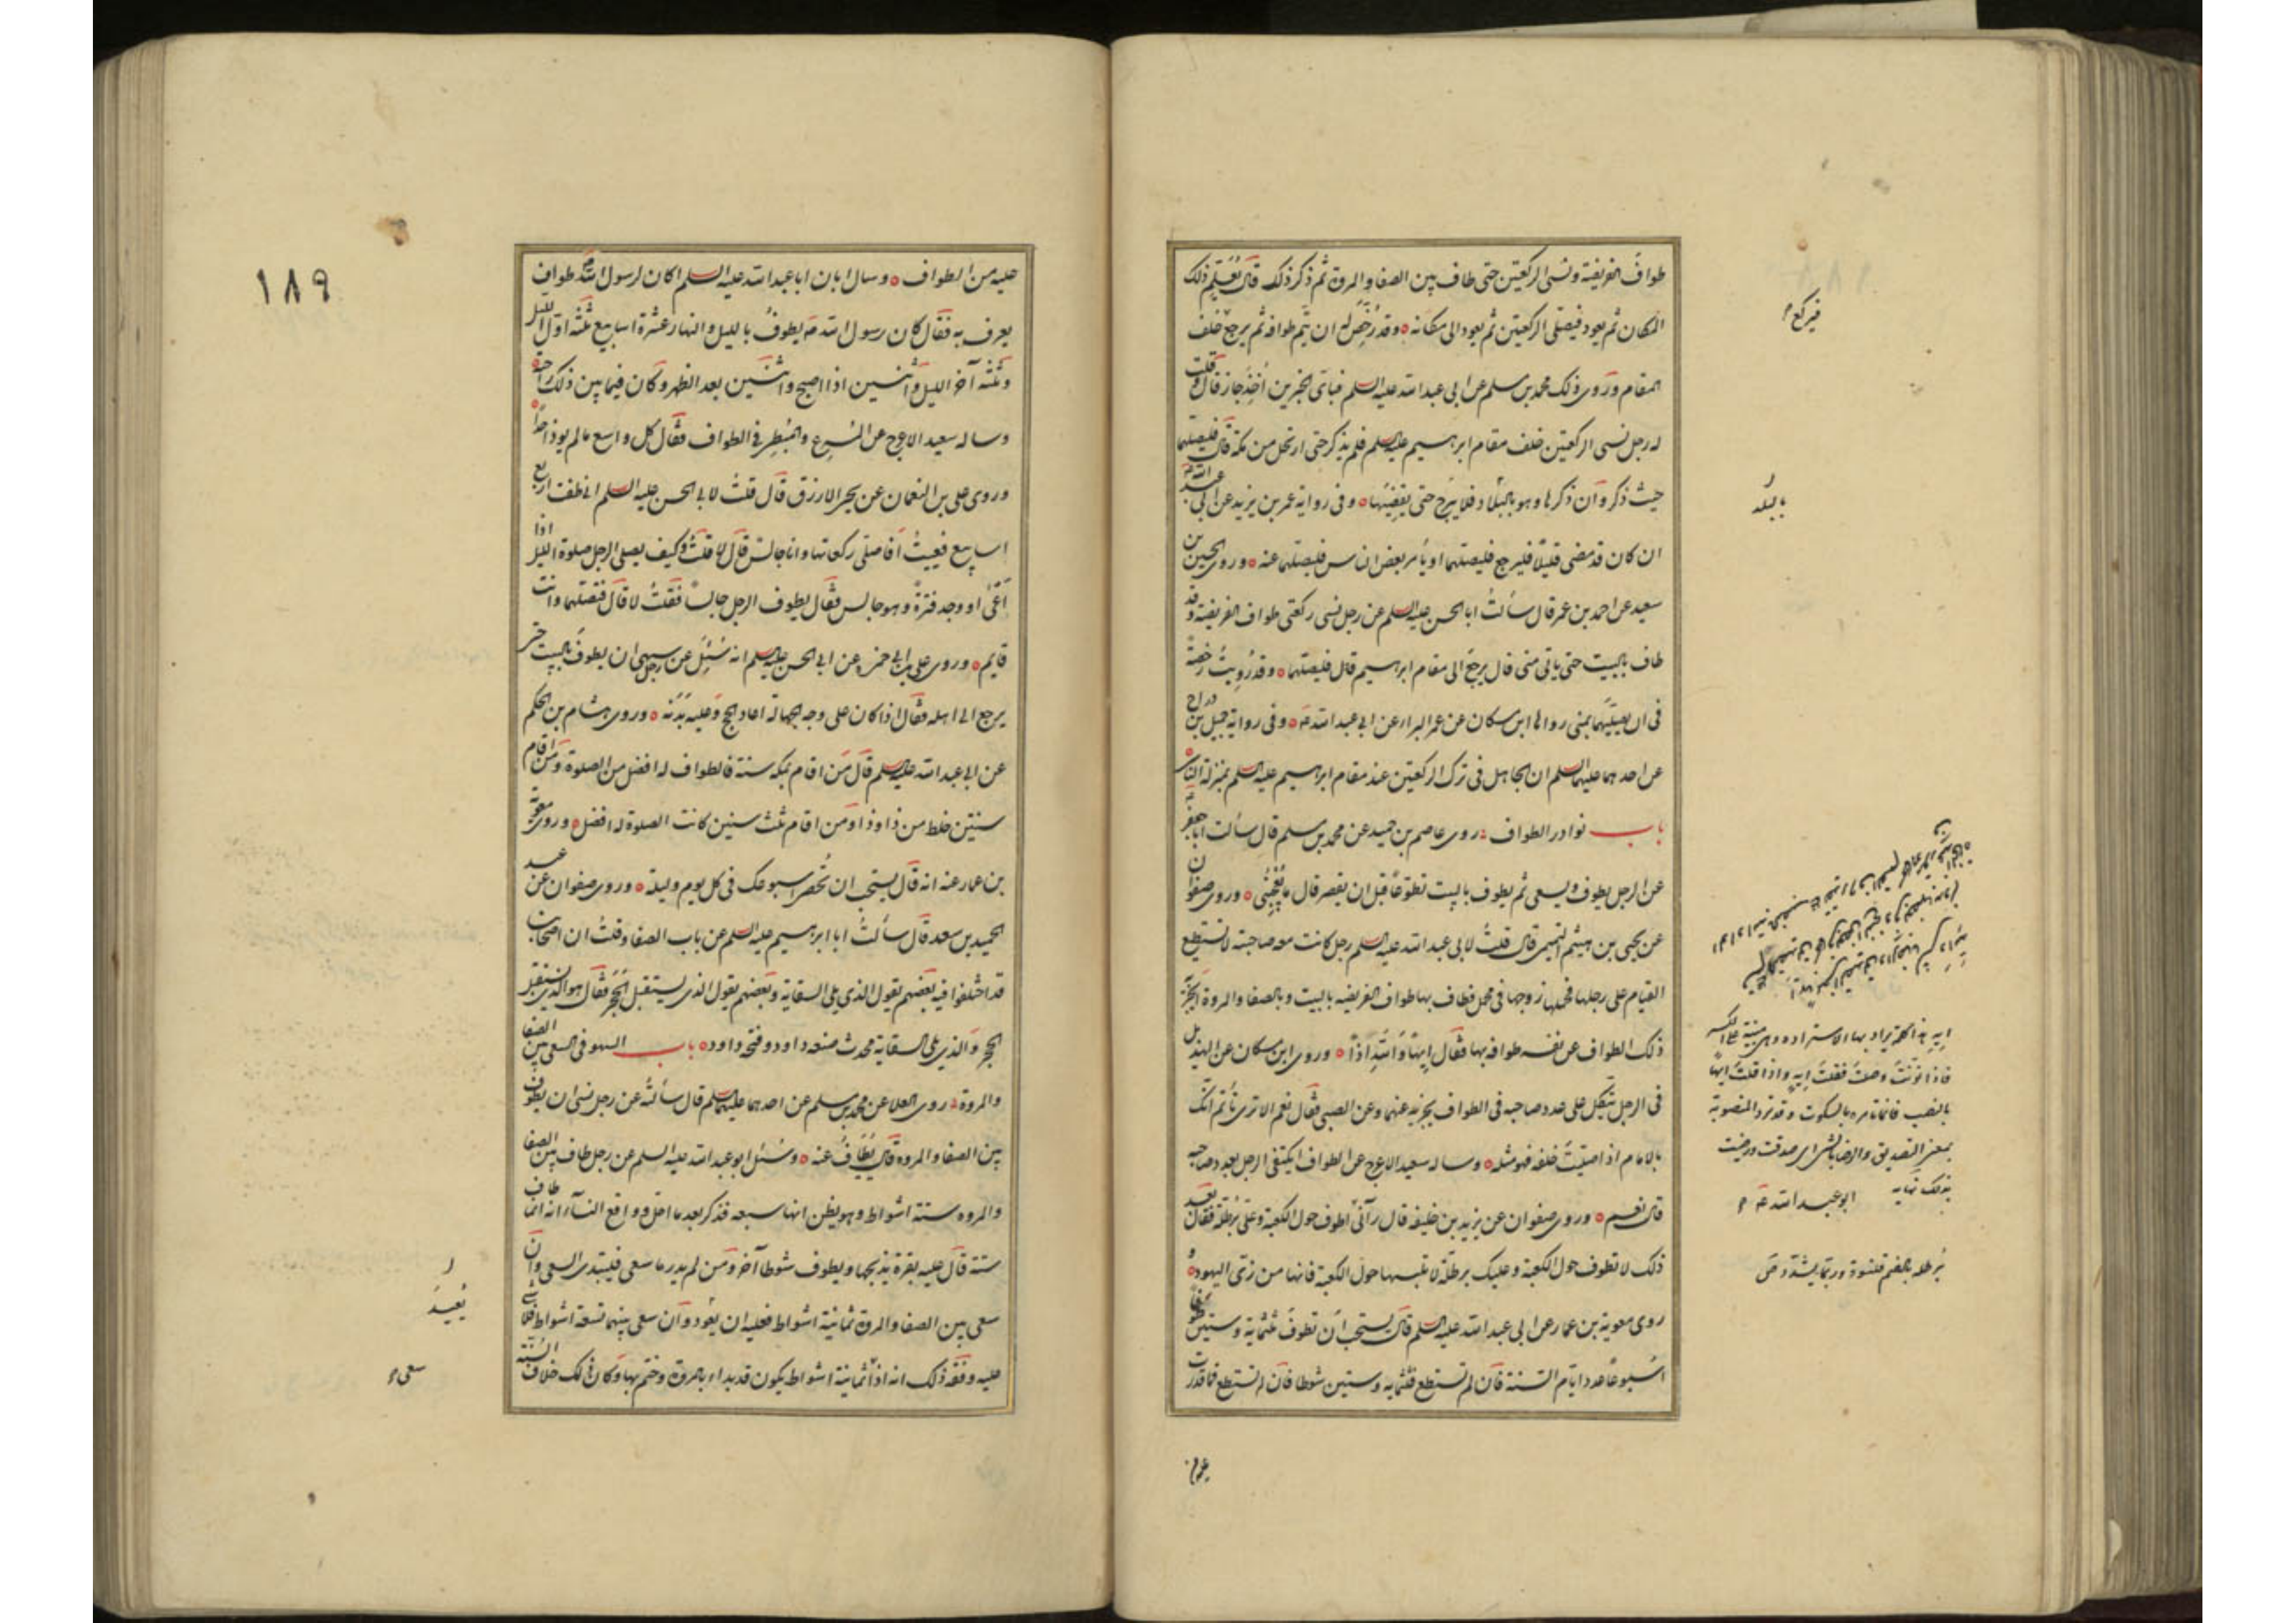 طواف الفريضة ونسى الركعتين حتى طاف بين الصفا والمروة ثم ذكر ذلك قال يُعَلِّم ذلك
المكان ثم يعود فيصلى الركعتين ثم يعود الى مكانه ه وقد رُخِّصَ له ان يتم طوافه ثم يرجع خلف
المقام وروى ذلك محمد بن مسلم عن ابى عبدالله عليه السلم فباى الخبرين اُخِذَ جاز قال وقلت
له رجل نسى الركعتين خلف مقام ابرهسيم عليه السلم فلم يذكر حتى ارتحل من مكة قال فليصلهما
حيث ذكر وان ذكرها وهو بالبلاد فلا يبرح حتى يقضيهما ه وفى رواية عمر بن يزيد عن ابى عبدالله ع
ان كان قد مضى قليلاً فليرجع فليصلهما او يأمر بعض الناس فليصلهما عنه ه وروى الحسين بن
سعيد عن احمد بن عمر قال سألتُ ابا الحسن عليه السلم عن رجل نسى ركعتى طواف الفريضة وقد
طاف بالبيت حتى ياتى منى قال يرجع الى مقام ابرهسيم قال فليصلهما ه وقد رُوِيَتْ رخصة
فى ان يصليهما بمنى رواها ابن مسكان عن عمر البراء عن ابى عبدالله ع ه وفى رواية جميل بن دراج
عن احدهما عليهما السلم ان الجاهل فى ترك الركعتين عند مقام ابرهسيم عليه السلم بمنزلة الناسى ه
باب نوادر الطواف : روى عاصم بن حميد عن محمد بن مسلم قال سألت ابا جعفر ع
عن الرجل يطوف ويسعى ثم يطوف بالبيت تطوعاً قبل ان يقصر قال ما يُعْجِبُنى ه وروى صفوان
عن يحيى بن هيثم التميمى قال قلتُ لابى عبدالله عليه السلم رجل كانت معه صاحبة لا تستطيع
القيام على رجلها فحملها زوجها فى محمل فطاف بها طواف الفريضه بالبيت وبالصفا والمروة ايجزيه
ذلك الطواف عن نفسه طوافه بها فقال اِيهاً وَاللهِ اِذاً ه وروى ابن مسكان عن الهذيل
فى الرجل يتكل على عدد صاحبه فى الطواف يجزيه عنهما وعن الصبى فقال نعم الا ترى تأتم انك
بالامام اذا صليتَ خلفه فهو مثله ه وساله سعيد الاعرج عن الطواف ايكتفى الرجل بعدد صاحبه
قال نعم ه وروى صفوان عن يزيد بن خليفة قال رآنى اطوف حول الكعبة وعلى بُرْطُلة فقال بعد
ذلك لا تطوف حول الكعبة وعليك برطلة لا تلبسها حول الكعبة فانها من زى اليهود ه و
روى معوية بن عمار عن ابى عبدالله عليه السلم قال يستحب ان تطوف ثلثماية وستين
اسبوعاً عدد ايام السنة فان لم تستطع فثلثمايه وستين شوطا فان لم تستطع فما قدرت
فيركع
بالبلد
ايه هذا كلمة يراد بها الاستزاده وهى مبنية على الكسر
فاذا نونت وصلت فقلت ايهٍ واذا قلت ايهاً
بالنصب فانما تامره بالسكوت وقد ترد المنصوبة
بمعنى التصديق والرضا بالشئ اى صدقت ورضيت
بذلك نهايه
ابو عبدالله ع
بُرطله بالضم قلنسوة وربما يشدد ص
١٨٩
عليه من الطواف ه وسال ابان ابا عبدالله عليه السلم اكان لرسول الله طواف
يعرف به فقال كان رسول الله ص يطوف بالليل والنهار عشرة اسابيع ثلثة اول الليل
وثلثة آخر الليل واثنين اذا اصبح واثنين بعد الظهر وكان فيما بين ذلك راحته ه
وساله سعيد الاعرج عن المُسرِع والمُبطِئ فى الطواف فقال كل واسع ما لم يوذ احدا ه
وروى على بن النعمان عن يحيى الازرق قال قلتُ لابى الحسن عليه السلم انى طفت اربع
اسابيع فعييتُ افاصلى ركعاتها وانا جالس قال لا قلتُ وكيف يصلى الرجل صلوة الليل اذا
اَعْيَى او وجد فترةً وهو جالس فقال يطوف الرجل جالساً فقلتُ لا قال فتصليهما وانت
قايم ه وروى على بن ابى حمزه عن ابى الحسن عليه السلم انه سُئِلَ عن رجل سهى ان يطوف بالبيت حتى
يرجع الى اهله فقال اذا كان على وجه الجهالة اعاد الحج وعليه بَدَنَة ه وروى هشام بن الحكم
عن ابى عبدالله عليه السلم قال مَن اقام بمكة سنة فالطواف له افضل من الصلوة ومَن اقام
سنتين خلط من ذا وذا ومَن اقام ثلث سنين كانت الصلوة له افضل ه وروى معوية
بن عمار عنه انه قال يستحب ان تُحصى اسبوعك فى كل يوم وليلة ه وروى صفوان عن عبد
الحميد بن سعد قال سألتُ ابا ابرهسيم عليه السلم عن باب الصفا وقلتُ ان اصحابنا
قد اختلفوا فيه بعضهم يقول الذى يلى السقاية وبعضهم يقول الذى يستقبل الحَجَر فقال هو الذى يستقبل
الحجر والذى يلى السقاية محدث صنعه داود وفتحه داود ه باب السهو فى السعى بين الصفا
والمروة : روى العلا عن محمد بن مسلم عن احدهما عليهما السلم قال سألتُه عن رجل نسى ان يطوف
بين الصفا والمروه قال يُطَافُ عنه ه وسُئل ابو عبدالله عليه السلم عن رجل طاف بين الصفا
والمروه ستة اشواط وهو يظن انها سبعه فذكر بعد ما احل وواقع النسآء انه انما طاف
ستة قال عليه بقرة يذبحها ويطوف شوطا آخر ومَن لم يدر ما سعى فليبتدى السعى وان
سعى بين الصفا والمروة ثمانية اشواط فعليه ان يعود وان سعى بينهما تسعة اشواط فلا شى
عليه وفقه ذلك انه اذا ثمانية اشواط يكون قد بداء بالمروة وختم بها وكان ذلك خلاف السنة
يُعيد
سعى